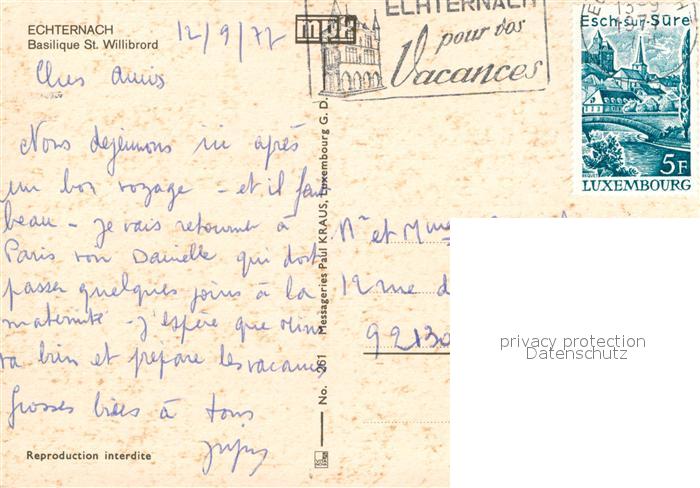 ECHTERNACH
Basilique St. Willibrord
12/9/77
ECHTERNACH
pour vos
Vacances
Esch-sur-Sûre
5F
LUXEMBOURG
Chers Amis
Nous déjeunons ici après
un bon voyage - et il fait
beau - je vais retourner à
Paris voir Danielle qui doit
passer quelques jours à la
maternité - j'espère que Rémi
va bien et prépare les vacances
Grosses bises à tous
Reproduction interdite
No. 261 Messageries Paul KRAUS, Luxembourg G. D.
Mr et Mme
12 rue d
92130
privacy protection
Datenschutz